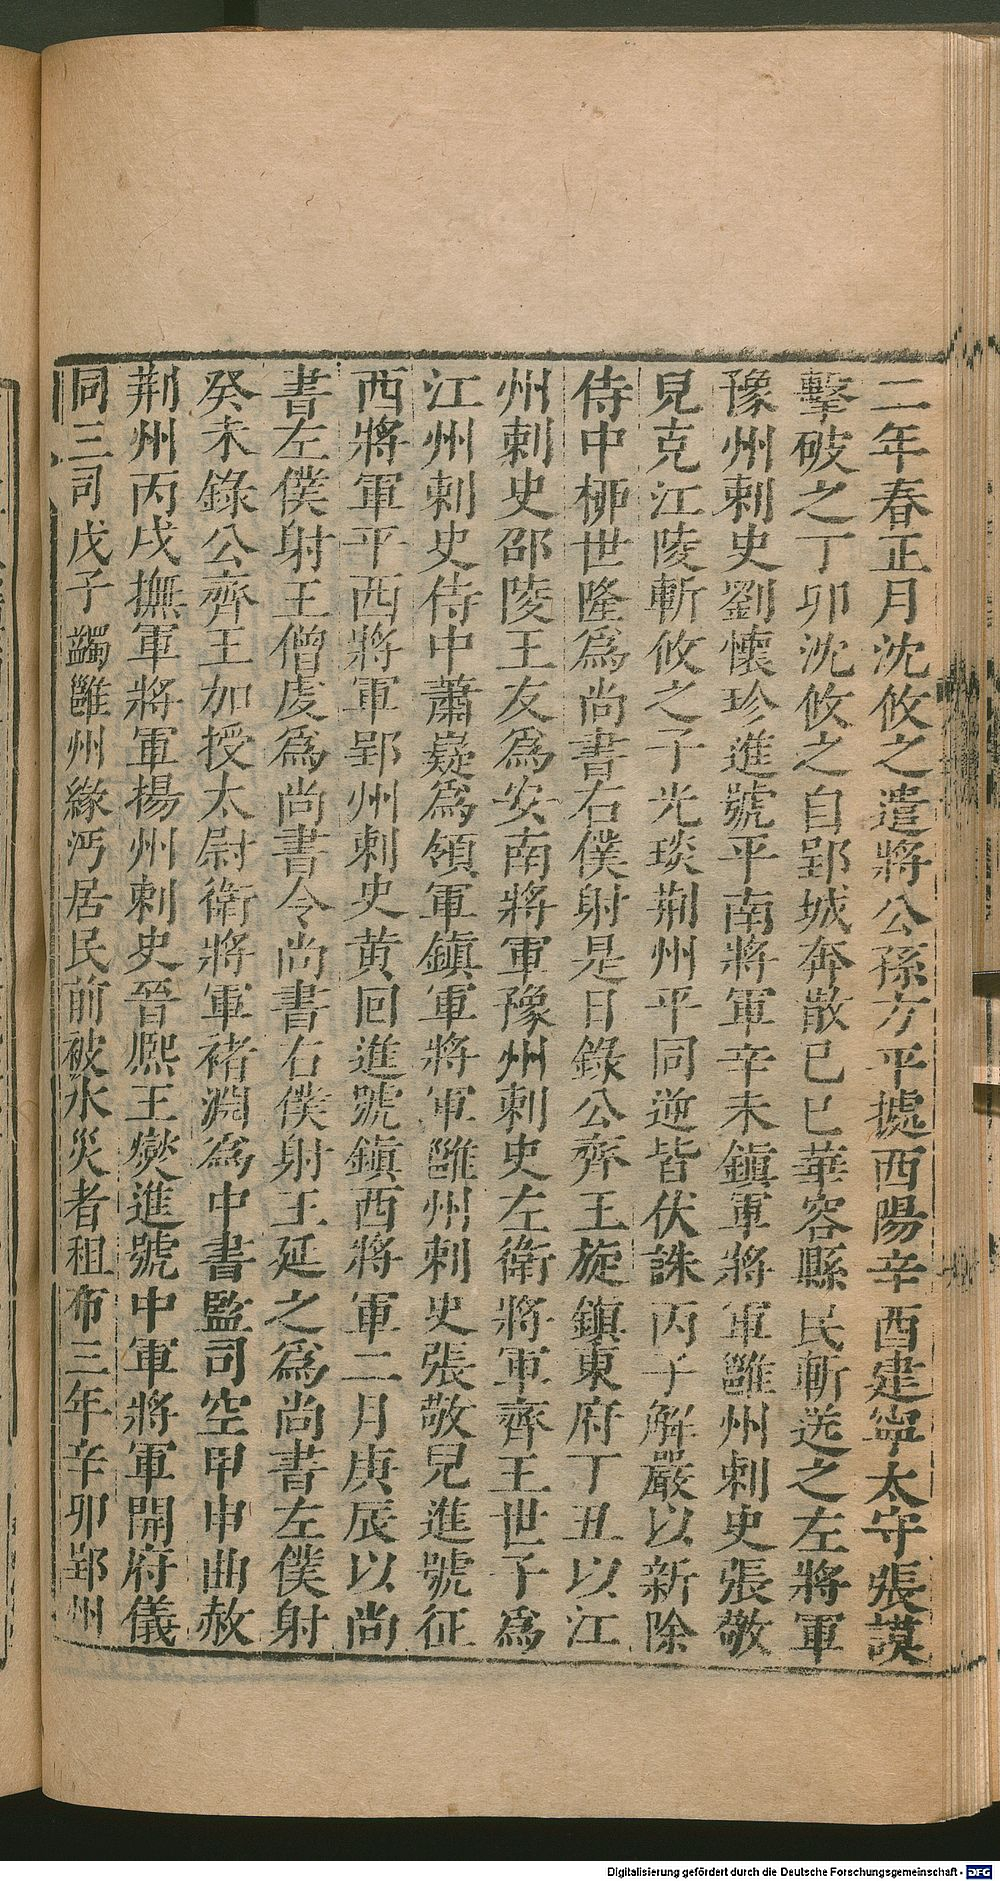 二年春正月沈攸之遣將公孫方平㨿西陽辛酉建寧太守張謨
擊破之丁卯沈攸之自郢城奔散己巳華容縣民斬送之左將軍
豫州刺史劉懷珍進號平南將軍辛未鎮軍將軍雝州刺史張敬
見克江陵斬攸之子光琰荆州平同逆皆伏誅丙子解嚴以新除
侍中栁世隆爲尚書右僕射是日錄公齊王旋鎮東府丁丑以江
州刺史邵陵王友爲安南將軍豫州刺史左衛將軍齊王世子爲
江州刺史侍中蕭嶷爲領軍鎮軍將軍雝州刺史張敬兒進號征
西將軍平西將軍郢州刺史黃回進號鎮西將軍二月庚辰以尚
書左僕射王僧虔爲尚書令尚書右僕射王延之爲尚書左僕射
癸未錄公齊王加授太尉衛將軍褚淵爲中書監司空甲申曲赦
荆州丙戌撫軍將軍揚州刺史晉熙王燮進號中軍將軍開府儀
同三司戊子蠲雝州緣沔居民前被水災者租布三年辛卯郢州
Digitalisierung gefördert durch die Deutsche Forschungsgemeinschaft - DFG